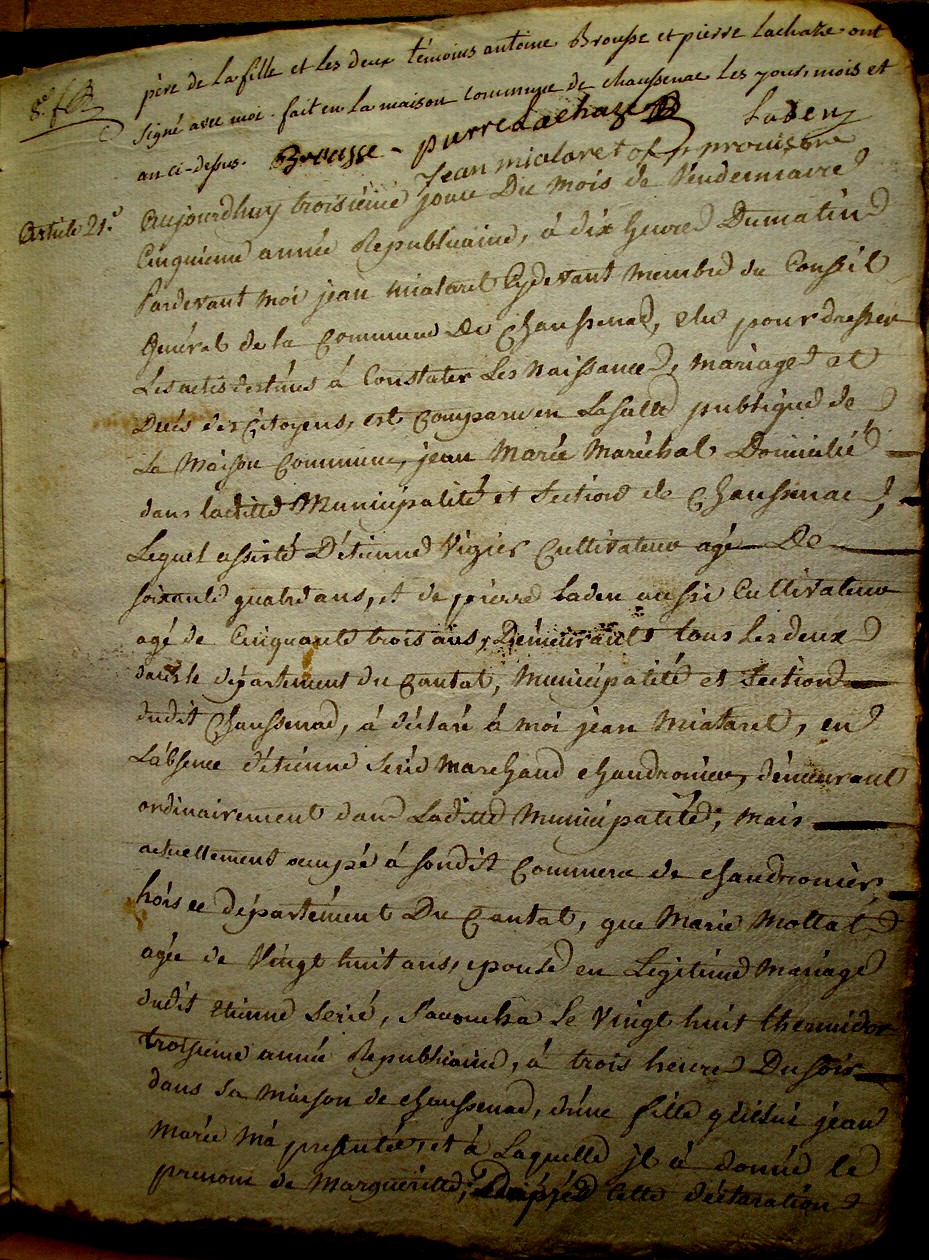 père de la fille et les deux témoins antoine Brousse et pierre Lachaze ont
signé avec moi. fait en la maison commune de chaussenac les jour, mois et
an ci-dessus. Brousse - pierre Lachaze Laden
Jean mialaret of. provisoire
Article 21e. Aujourdhuy troisiéme jour Du mois de Vendemiaire
Cinquieme année Republicaine, à dix heures Dumatin
Pardevant moi jean mialaret Cydevant membre du Conseil
Général de la Commune De Chaussenac, elu pour dresser
Les actes destinés à Constater Les Naissances, mariages et
Decés des Citoyens, est Comparu en La Salle publique de
La Maison Commune, jean Marie Maréchal Domicilié
dans laditte Municipalité et Section de Chaussenac,
Lequel assisté D'étienne Vigier Cultivateur agé De
soixante quatre ans, et de pierre Laden aussi Cultivateur
agé de Cinquante trois ans, Demeurants tous les deux
dans le département du Cantal, Municipalité et Section
dudit Chaussenac, à déclaré à moi jean Mialaret, en
L'absence d'étienne Serié Marchand chaudronier, démeurant
ordinairement dans Laditte Municipalité; mais
actuellement occupé à sondit Commerce de chaudronier,
hors ce département Du Cantal, que Marie Mottat
agée de Vingt huit ans, epouse en Legitime Mariage
dudit Etienne Serié, Accoucha le Vingt huit thermidor
troisieme année Republicaine, à trois heures Du soir
dans sa maison de chaussenac, d'une fille qu'issi jean
Marie m'a presentée, et à Laquelle il a donné le
prenom de Marguéritte; D'après cette déclaration